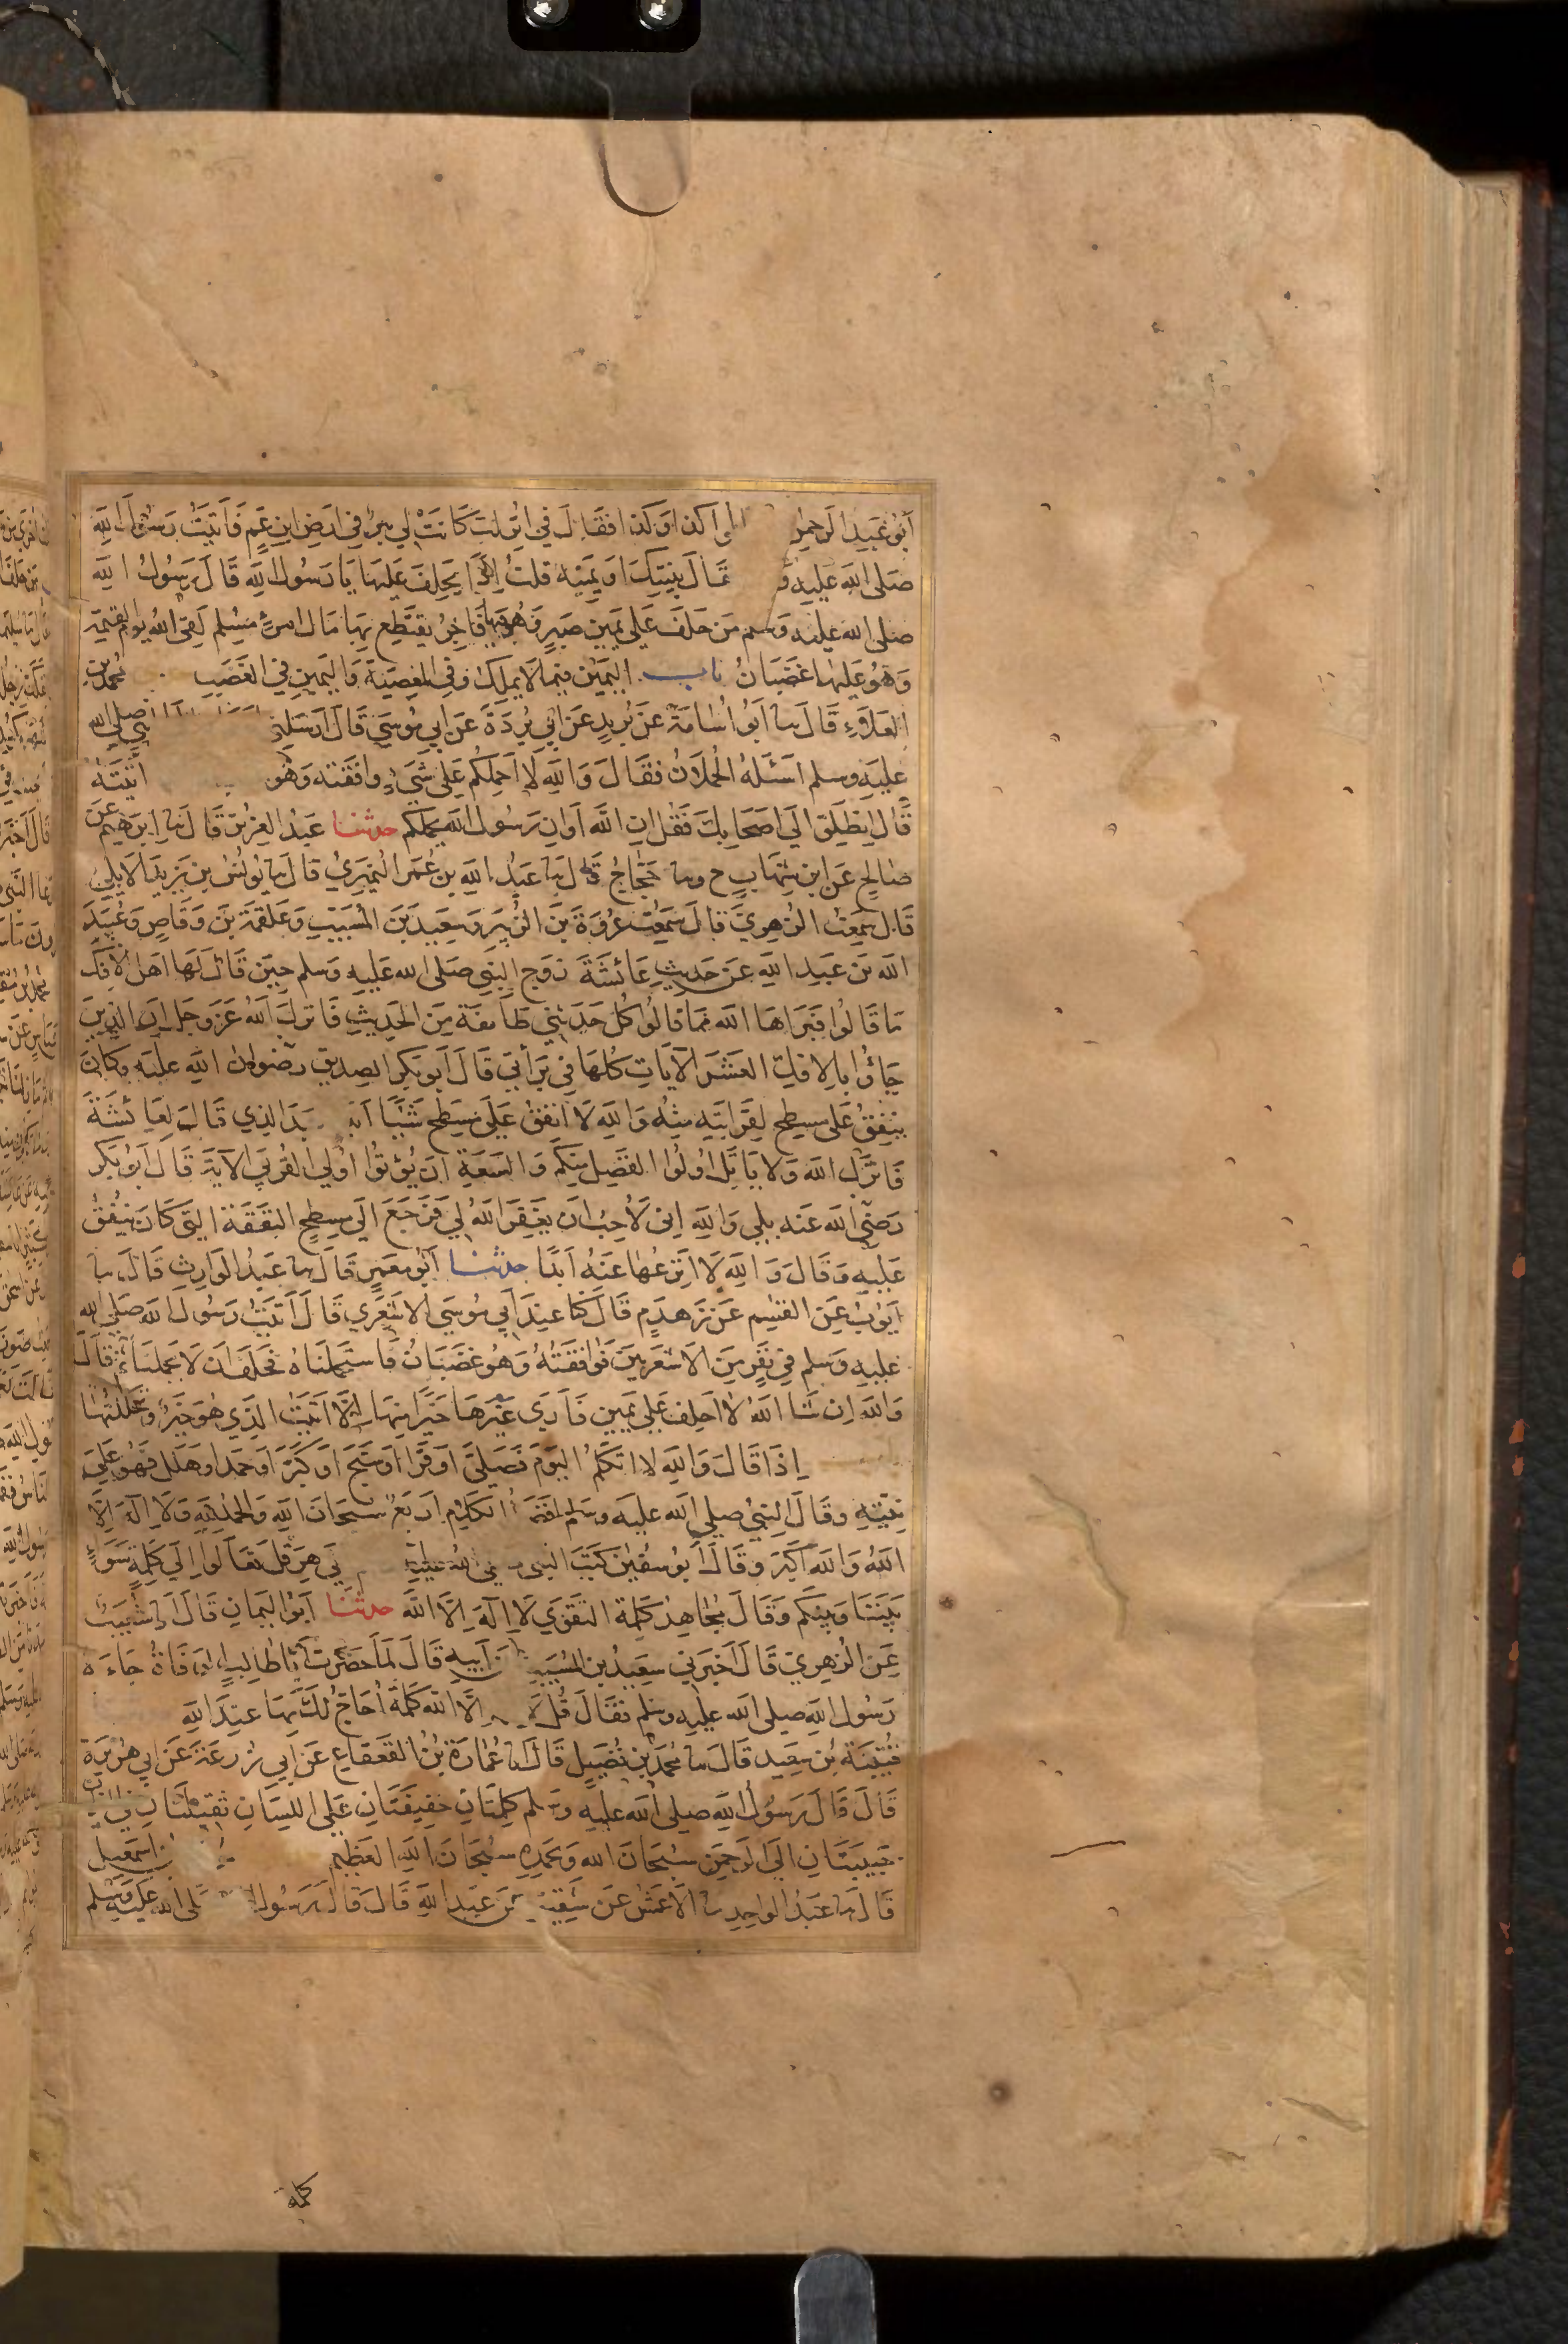 أبو عبد الرحمن كذا وكذا فقال في انزلت كانت لي بير في ارض ابن عم فأتيت رسول الله
صلى الله عليه قال بينتك او يمينه قلت اذا يحلف عليها يا رسول الله قال رسول الله
صلى الله عليه وسلم من حلف على يمين صبر وهو فيها فاجر يقتطع بها مال امرئ مسلم لقي الله يوم القيمة
وهو عليها غضبان باب اليمين فيما لا يملك وفي المعصية واليمين في الغضب محمد بن
العلاء قال نا أبو أسامة عن بريد عن أبي بردة عن أبي موسى قال أرسلني صلى الله
عليه وسلم اسئله الحملان فقال والله لا احملكم على شيء ووافقته وهو اتيته
قال انطلق الى اصحابك فقل ان الله أو ان رسول الله يحملكم حدثنا عبد العزيز قال نا ابرهيم عن
صالح عن ابن شهاب ح ونا حجاج قال نا عبد الله بن عمر النميري قال نا يونس بن يزيد الايلي
قال سمعت الزهري قال سمعت عروة بن الزبير وسعيد بن المسيب وعلقمة بن وقاص وعبيد
الله بن عبد الله عن حديث عائشة زوج النبي صلى الله عليه وسلم حين قال لها اهل الافك
ما قالوا فبراها الله مما قالوا كل حدثني طائفة من الحديث فانزل الله عز وجل ان الذين
جاؤا بالافك العشر الآيات كلها في براتي قال أبو بكر الصديق رضوان الله عليه وكان
ينفق على مسطح لقرابته منه والله لا انفق على مسطح شيئا الذي قال لعائشة
فانزل الله ولا ياتل اولوا الفضل منكم والسعة ان يؤتوا اولي القربى الآية قال أبو بكر
رضي الله عنه بلى والله اني لأحب ان يغفر الله لي فرجع الى مسطح النفقة التي كان ينفق
عليه وقال والله لا انزعها عنه أبدا حدثنا أبو معمر قال نا عبد الوارث قال نا
أيوب عن القسم عن زهدم قال كنا عند أبي موسى الاشعري قال أتيت رسول الله صلى الله
عليه وسلم في نفر من الاشعريين فوافقته وهو غضبان فاستحملناه فحلف ان لا يحملنا ثم قال
والله ان شا الله لا احلف على يمين فأرى غيرها خيرا منها إلا اتيت الذي هو خير وتحللتها
إذا قال والله لا اتكلم اليوم فصلى أو قرا أو سبح أو كبر أو حمد أو هلل فهو على
نيته وقال النبي صلى الله عليه وسلم الكلام اربع سبحان الله والحمد لله ولا اله إلا
الله والله أكبر وقال أبو سفين كتب النبي هرقل تعالوا إلى كلمة سواء
بيننا وبينكم وقال مجاهد كلمة التقوى لا اله الا الله حدثنا أبو اليمان قال انا شعيب
عن الزهري قال اخبرني سعيد بن المسيب أبيه قال لما حضرت أبا طالب جاءه
رسول الله صلى الله عليه وسلم فقال قل لا إلا الله كلمة أحاج لك بها عند الله
قتيبة بن سعيد قال نا محمد بن فضيل قال نا عمارة بن القعقاع عن أبي زرعة عن أبي هريرة
قال قال رسول الله صلى الله عليه وسلم كلمتان خفيفتان على اللسان ثقيلتان في
حبيبتان الى الرحمن سبحان الله وبحمده سبحان الله العظيم اسمعيل
قال نا عبد الواحد نا الاعمش عن شقيق عن عبد الله قال قال رسول صلى الله عليه وسلم
كلمة